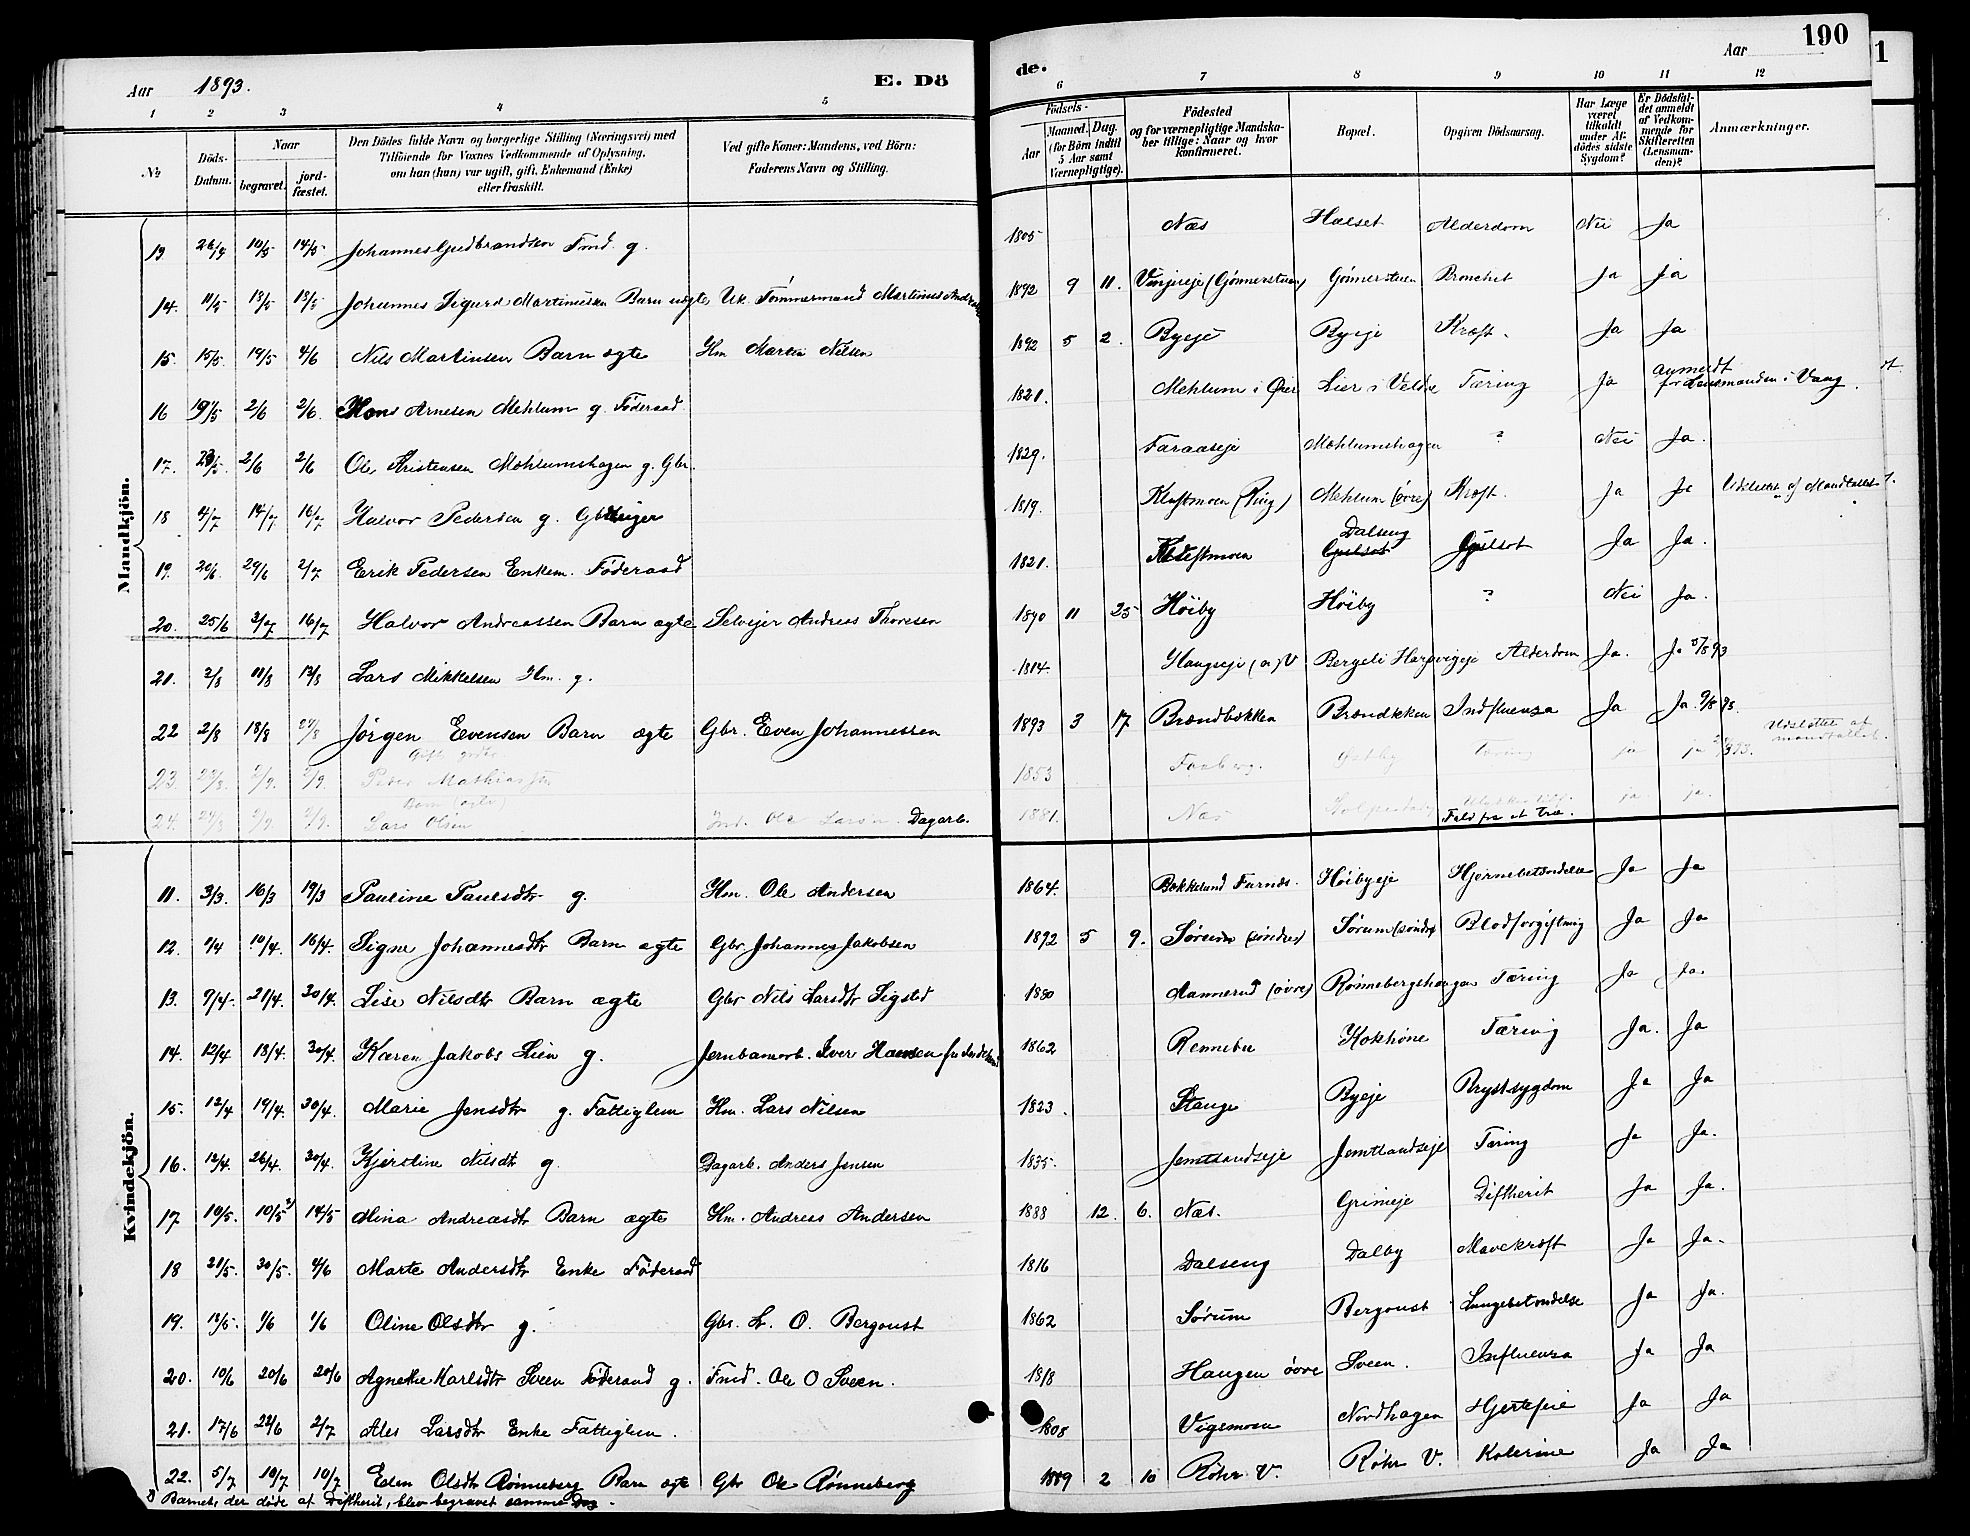 Aar 1893. E. Dö
1 2 3 4 5
№ Döds-Datum. Naar begravet. jordfæstet. Den Dödes fulde Navn og borgerlige Stilling (Næringsvei) med Tilföiende for Voxnes Vedkommende af Oplysning, om han (hun) var ugift, gift, Enkemand (Enke) eller fraskilt. Ved gifte Koner: Mandens, ved Börn: Faderens Navn og Stilling.
Mandkjön.
13 26/4 10/5 14/5 Johannes Gudbrandsen g.
14. 11/5 13/5 13/5 Johannes Sigurd Martiniusen Barn uægte Uk. Tømmermand Martinus
15. 15/5 19/5 4/6 Nils Martinsen Barn ægte Hm Martin Nilsen
16 19/5 2/6 2/6 Hans Arnesen Mehlum g. Føderaad
17. 23/5 2/6 2/6 Ole Kristensen Mehlumshagen g. Gbr.
18 4/7 14/7 16/7 Halvor Pedersen g.
19. 20/6 29/6 2/7 Erik Pedersen Enkem. Føderaad
20. 25/6 3/7 16/7 Halvor Andreassen Barn ægte Selvejer Andreas Thoresen
21. 2/8 11/8 13/8 Lars Mikkelsen Hm. g.
22 2/8 18/8 27/8 Jörgen Evensen Barn ægte Gbr. Even Johannessen
23. 2/9. 2/9. Peder Mathias
24. 2/9 2/9. Barn (ægte) Lars Olsen Ind. Ole Dagarb.
Kvindekjön.
11. 3/3. 16/3 19/3 Pauline Paulsdtr g. Hm. Ole Andersen
12. 1/4 10/4. 16/4. Signe Johannesdtr Barn ægte Gbr Johannes Jakobsen
13. 9/4. 21/4. 30/4. Lise Nilsdtr Barn ægte Gbr Nils Larsdtr Sigstad
14. 12/4 18/4. 30/4. Karen Jakobs Lien g. Jernbanearb. Iver Hansen
15. 12/4 19/4. 30/4. Marie Jensdtr g. Fattiglem Hm. Lars Nilsen
16. 12/4. 26/4. 30/4. Kjerstine Nilsdtr g. Dagarb. Anders Jensen
17. 10/5. 10/5 14/5 Mina Andreasdtr Barn ægte Hm. Andreas Andersen
18 21/5. 30/5. 4/6 Marte Andersdtr Enke Føderaad
19. 12/5. 1/6 1/6 Oline Olsdtr g. Gbr. L. O. Bergoust
20. 10/6 20/6 20/6 Agnethe Karlsdtr Sveen Føderaad g. Fmd. Ole O Sveen.
21. 17/6 22/6 2/7 Ales Larsdtr Enke Fattiglem.
22. 5/7 10/7 10/7 Olsdtr Rønneberg Barn ægte Gbr Ole Rønneberg
Barnet, der døde af Difterit, blev begravet samme Dag.
de. Aar 190
6 7 8 9 10 11 12
Födsels- Aar Maaned. Dag. (for Börn indtil 5 Aar samt Værnepligtige). Födested og for værnepligtige Mandskaber tillige: Naar og hvor konfirmeret. Bopæl. Opgiven Dödsaarsag. Har Læge været tilkaldt under Afdödes sidste Sygdom? Er Dödsfaldet anmeldt af Vedkommende for Skifteretten (Lensmanden)? Anmærkninger.
1805 Næs Halset Alderdom Nei Ja
1892 9 11. Vinjueje (Gønnerstuen) Gønnerstuen Bronchit Ja Ja
1892 5 2. Byeje Byeje Kræft. Ja Ja
1821. Mehlum i Øier Lier i Veldre Tæring Ja anmeldt for Lensmanden i Vang.
1829. Faraaseje Mæhlumshagen ? Nei Ja.
1819. Kluftmoen (Ring) Mehlum (øvre) Kræft. Ja Ja Udslettet af Mandtallet.
1821. Kluftmoen Dalseng Gulsot Ja Ja.
1890 11 25 Höiby Höiby ? Nei Ja.
1814. Haugseje Bergeli Alderdom Ja. Ja 5/8 93
1893 3 17. Brændbækken Influenza Ja Ja. 9/8 93.
1853 Faaberg. Tæring ja ja Udslettet af mandtallet.
1881. Næs Fald fra et Træ. ja ja.
1864. Bækkelund Furnæs. Höibyeje Hjernebetændelse Ja Ja
1892 5 9. Sørum (søndre) Sørum (søndre) Blodforgiftning Ja Ja
1850 (øvre) Rønnebergshaugen Tæring Ja Ja.
1862 Rennebu Kokhøne Tæring Ja. Ja
1823. Stange Byeje Brystsygdom Ja Ja
1835. Jemtlandseje Jemtlandseje Tæring Ja Ja.
1888 12. 6. Næs. Grimeje Diftherit Ja Ja.
1816 Dalseng Dalby Mavekræft Ja Ja.
1862 Sørum Bergoust Lungebetændelse Ja Ja.
1818 Haugen øvre Sveen. Influenza Ja Ja
1808 Vigsmoen Nordhagen Hjertefeil Ja Ja
1889 2 10 Röhr V. Röhr V. Kolerine Ja Ja
1